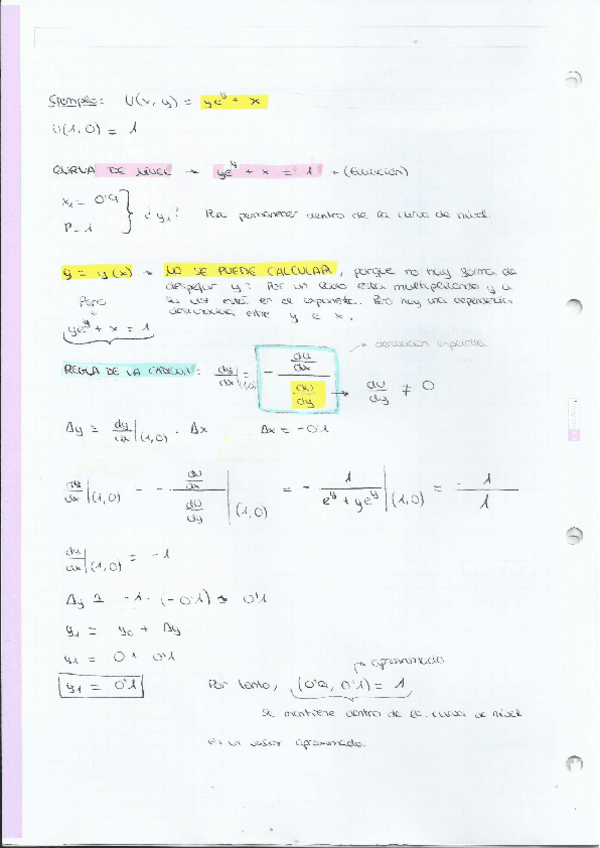 Ejemplo: U(x, y) = ye^y + x
U(1, 0) = 1
CURVA DE NIVEL → ye^y + x = 1 → (Ecuación)
x₁ = 0'9
P = 1
¿y₁? Para permanecer dentro de la curva de nivel.
y = y(x) → NO SE PUEDE CALCULAR, porque no hay forma de
despejar y. Por un lado está multiplicando y a
su vez está en el exponente. Pero hay una dependencia
entre y e x.
Pero
ye^y + x = 1
→ derivación implícita
REGLA DE LA CADENA: dy/dx|(1,0) = - (dU/dx)/(dU/dy) → dU/dy ≠ 0
Δy ≅ dy/dx|(1,0) · Δx Δx = -0'1
dy/dx|(1,0) = - (dU/dx)/(dU/dy)|(1,0) = - 1/(e^y + ye^y)|(1,0) = - 1/1
|(1,0) = -1
Δy ≅ -1 · (-0'1) ≅ 0'1
y₁ = y₀ + Δy
y₁ = 0 + 0'1
→ aproximado
y₁ = 0'1 Por tanto, (0'9, 0'1) = 1
Se mantiene dentro de la curva de nivel
Es un valor aproximado.